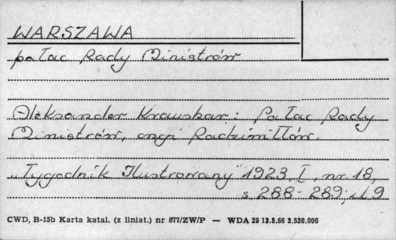 WARSZAWA
pałac Rady Ministrów
Aleksander Kraushar: Pałac Rady
Ministrów, ongi Radziwiłłów.
„Tygodnik Ilustrowany" 1923, I, nr 18,
s. 288-289; il. 9
CWD, B-15b Karta katal. (z liniat.) nr 877/ZW/P — WDA 29 13.8.66 3.530.000